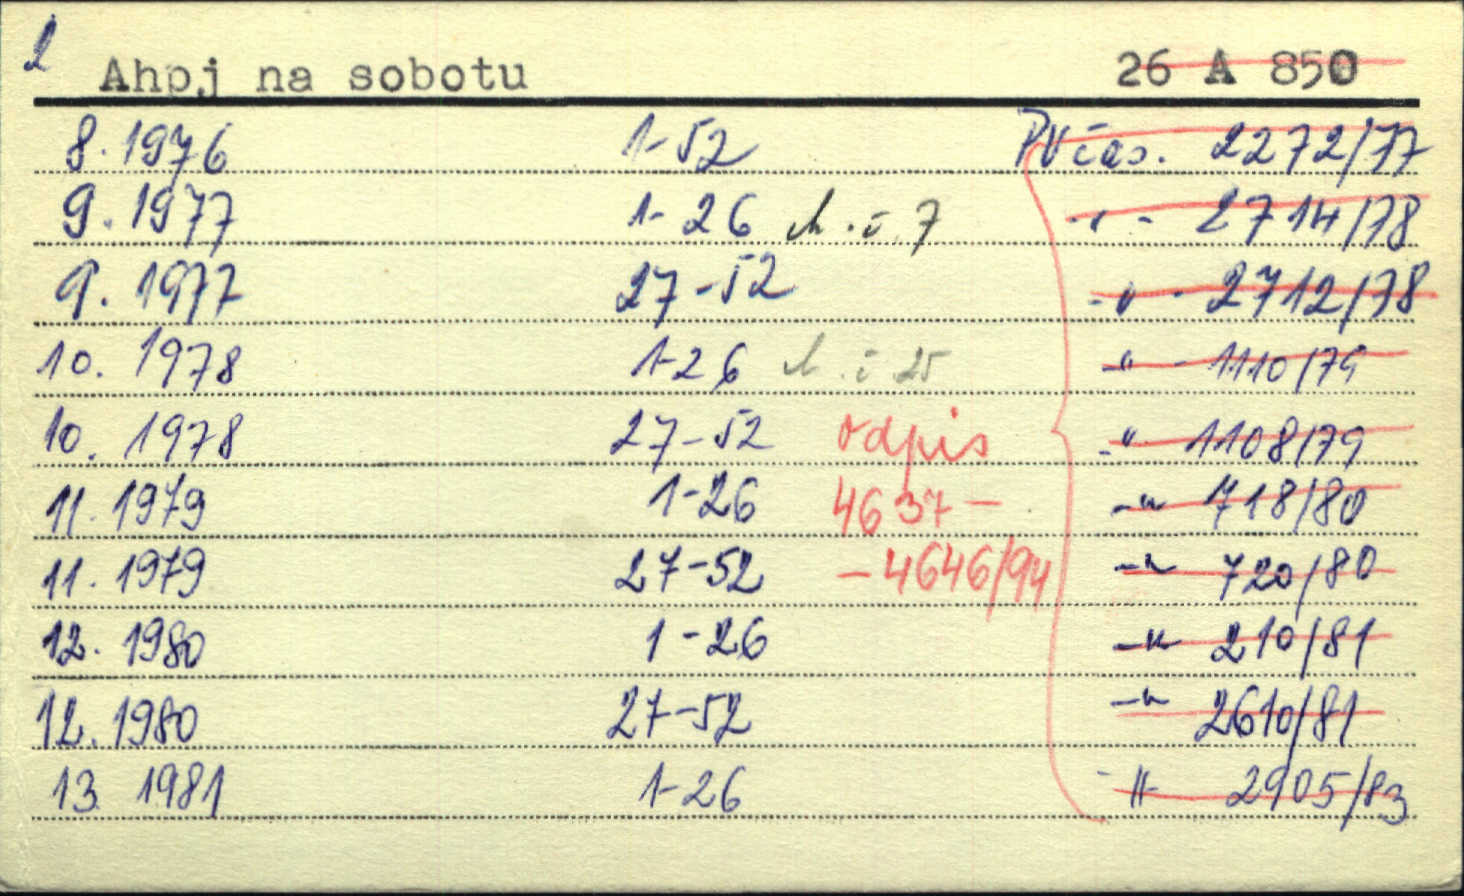 2
Ahoj na sobotu 26 A 850
8. 1976 1-52 PV čas. 2272/77
9. 1977 1-26 ch. č. 7 -"- 2714/78
9. 1977 27-52 -"- 2712/78
10. 1978 1-26 ch. č 25 -"- 1110/79
10. 1978 27-52 odpis -"- 1108/79
11. 1979 1-26 4637- -"- 718/80
11. 1979 27-52 -4646/94 -"- 720/80
12. 1980 1-26 -"- 210/81
12. 1980 27-52 -"- 2610/81
13 1981 1-26 -"- 2905/83